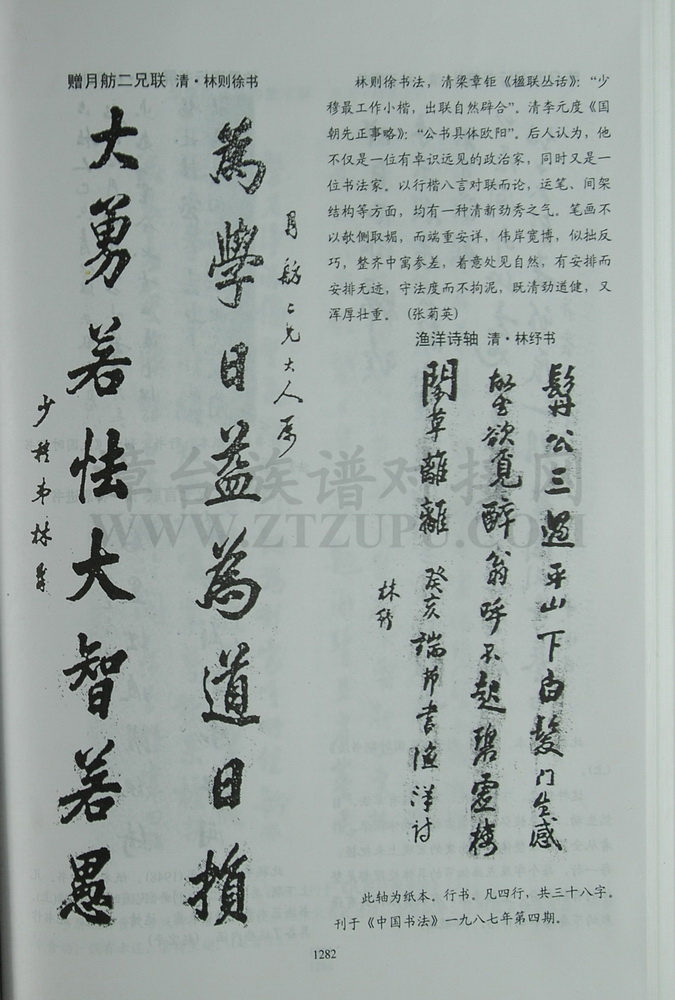 赠月舫二兄联 清·林则徐书
月舫二兄大人属
為學日益為道日損
大勇若怯大智若愚
少穆弟林則徐
林则徐书法，清梁章钜《楹联丛话》：“少
穆最工作小楷，出联自然辟合”。清李元度《国
朝先正事略》：“公书具体欧阳”。后人认为，他
不仅是一位有卓识远见的政治家，同时又是一
位书法家。以行楷八言对联而论，运笔、间架
结构等方面，均有一种清新劲秀之气。笔画不
以欹侧取媚，而端重安详，伟岸宽博，似拙反
巧，整齐中寓参差，着意处见自然，有安排而
安排无迹，守法度而不拘泥，既清劲道健，又
浑厚壮重。（张菊英）
渔洋诗轴 清·林纾书
髯公三過平山下白髮门生感
欲覓醉翁呼不起碧雲樓
閣草離離 癸亥端节書漁洋诗
林紓
此轴为纸本。行书。凡四行，共三十八字。
刊于《中国书法》一九八七年第四期。
1282
章台族谱对接网
WWW.ZTZUPU.COM